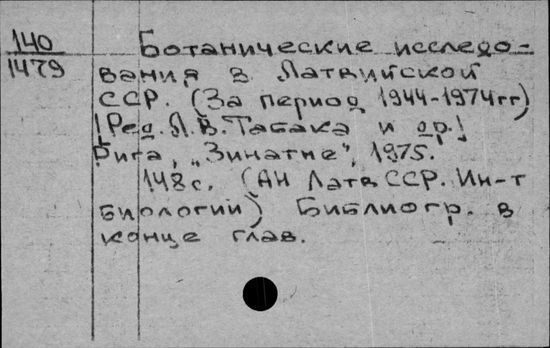 140
1479
Ботанические исследо-
вания в Латвийской
ССР. (За период 1944-1974гг)
[Ред. Л.В. Табака и др.]
Рига, „Зинатне", 1975.
148 с. (АН Латв ССР. Ин-т
биологии) Библиогр. в
конце глав.